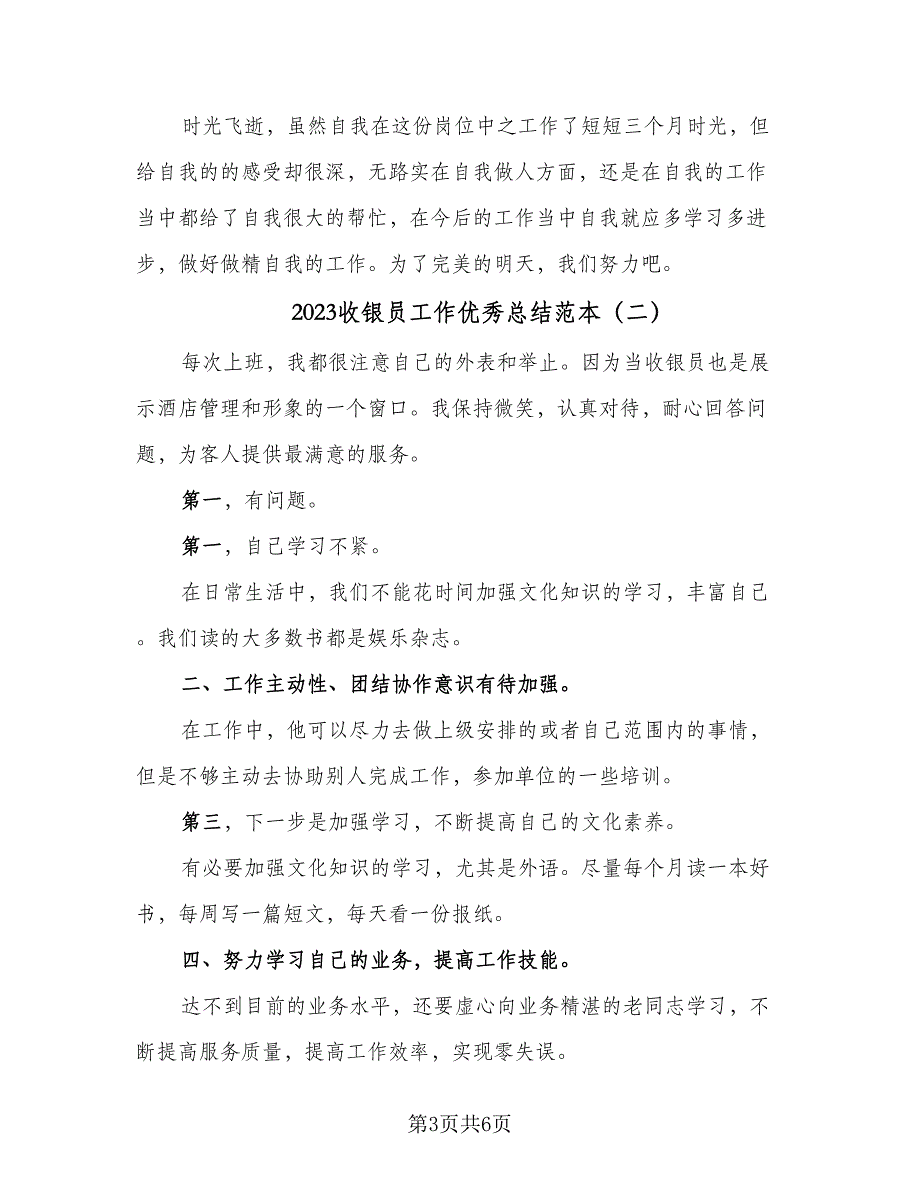 时光飞逝，虽然自我在这份岗位中之工作了短短三个月时光，但
给自我的的感受却很深，无路实在自我做人方面，还是在自我的工作
当中都给了自我很大的帮忙，在今后的工作当中自我就应多学习多进
步，做好做精自我的工作。为了完美的明天，我们努力吧。
2023收银员工作优秀总结范本（二）
每次上班，我都很注意自己的外表和举止。因为当收银员也是展
示酒店管理和形象的一个窗口。我保持微笑，认真对待，耐心回答问
题，为客人提供最满意的服务。
第一，有问题。
第一，自己学习不紧。
在日常生活中，我们不能花时间加强文化知识的学习，丰富自己
。我们读的大多数书都是娱乐杂志。
二、工作主动性、团结协作意识有待加强。
在工作中，他可以尽力去做上级安排的或者自己范围内的事情，
但是不够主动去协助别人完成工作，参加单位的一些培训。
第三，下一步是加强学习，不断提高自己的文化素养。
有必要加强文化知识的学习，尤其是外语。尽量每个月读一本好
书，每周写一篇短文，每天看一份报纸。
四、努力学习自己的业务，提高工作技能。
达不到目前的业务水平，还要虚心向业务精湛的老同志学习，不
断提高服务质量，提高工作效率，实现零失误。
第3页共6页